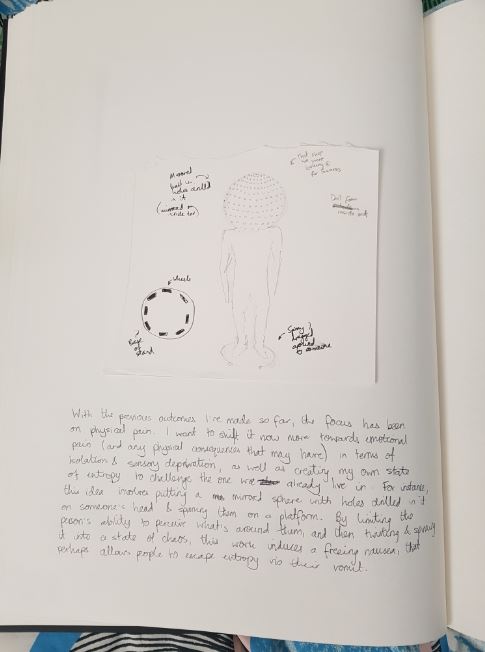 Mirrored
ball w.
holes drilled
in it
(mirrored inside too)
Drill from
inside out
wheels
Base
of
stand
Spinny
applied
to someone
With the previous outcomes I've made so far, the focus has been
on physical pain. I want to shift it now more towards emotional
pain (and any physical consequences that may have) in terms of
isolation & sensory deprivation, as well as creating my own state
of entropy to challenge the one we already live in. For instance,
this idea involves putting a mirrored sphere with holes drilled in it
on someone's head & spinning them on a platform. By limiting the
person's ability to perceive what's around them, and then twisting & spinning
it into a state of chaos, this work induces a freeing nausea, that
perhaps allows people to escape entropy via their vomit.